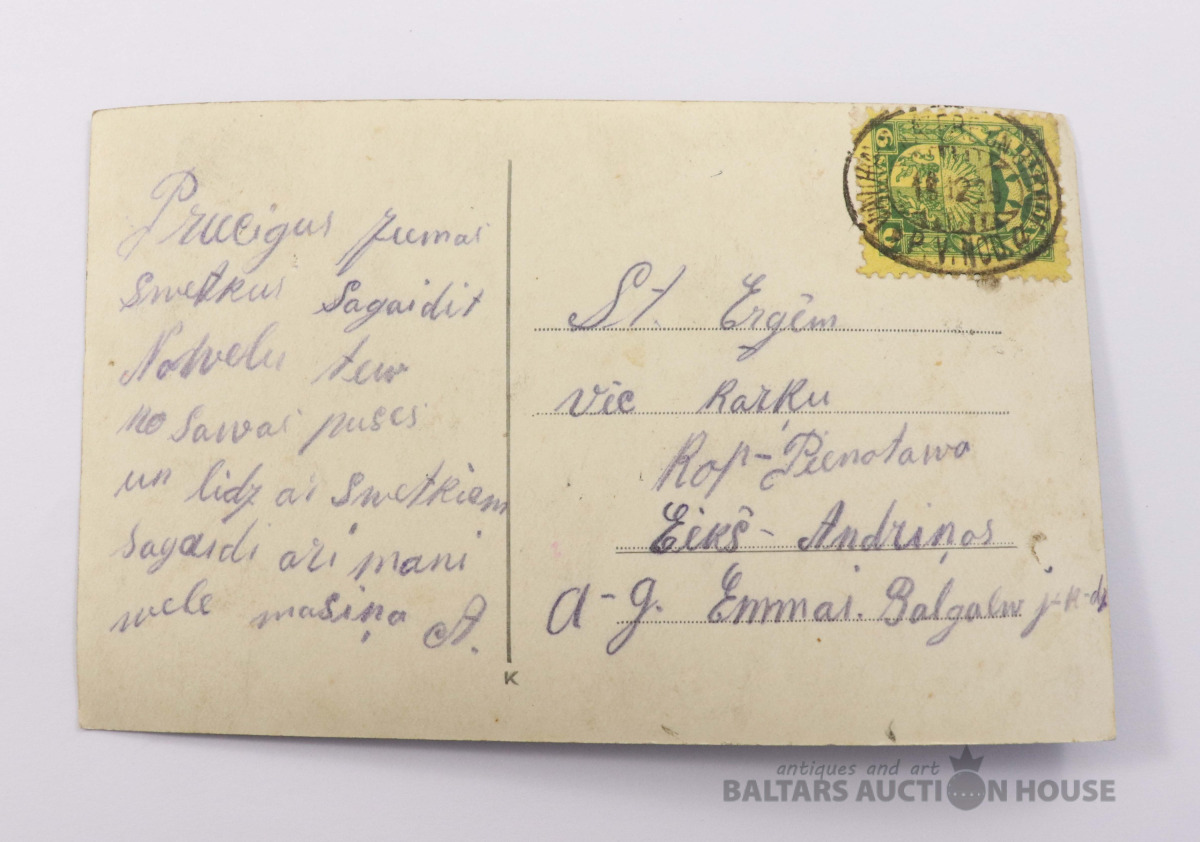 Precigus zumai
swetkus sagaidit
Nowelu tew
no sawas puses
un lidz ar swetkiem
sagaidi ari mani
wele masiņa A.
K
St. Ergēm
vic Karķu
Kop-Pienotawa
Eikš-Andriņos
A-g. Emmai. Balgalw j-k-dz
6
P.V. NOD.
antiques and art
BALTARS AUCTION HOUSE